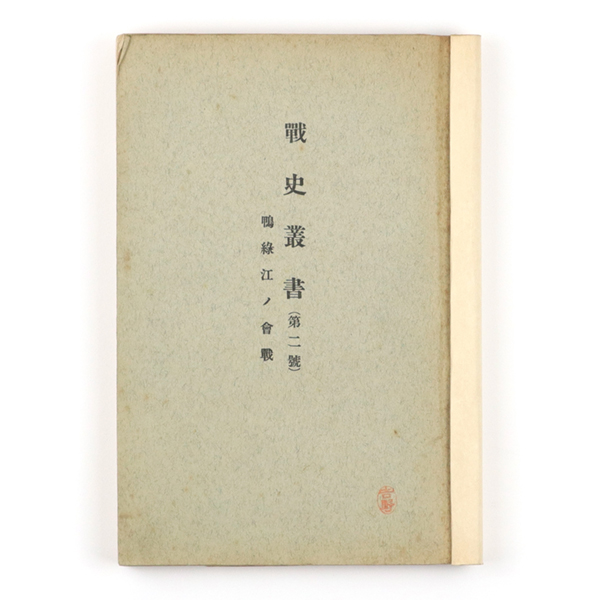 戰史叢書（第二號）
鴨綠江ノ會戰